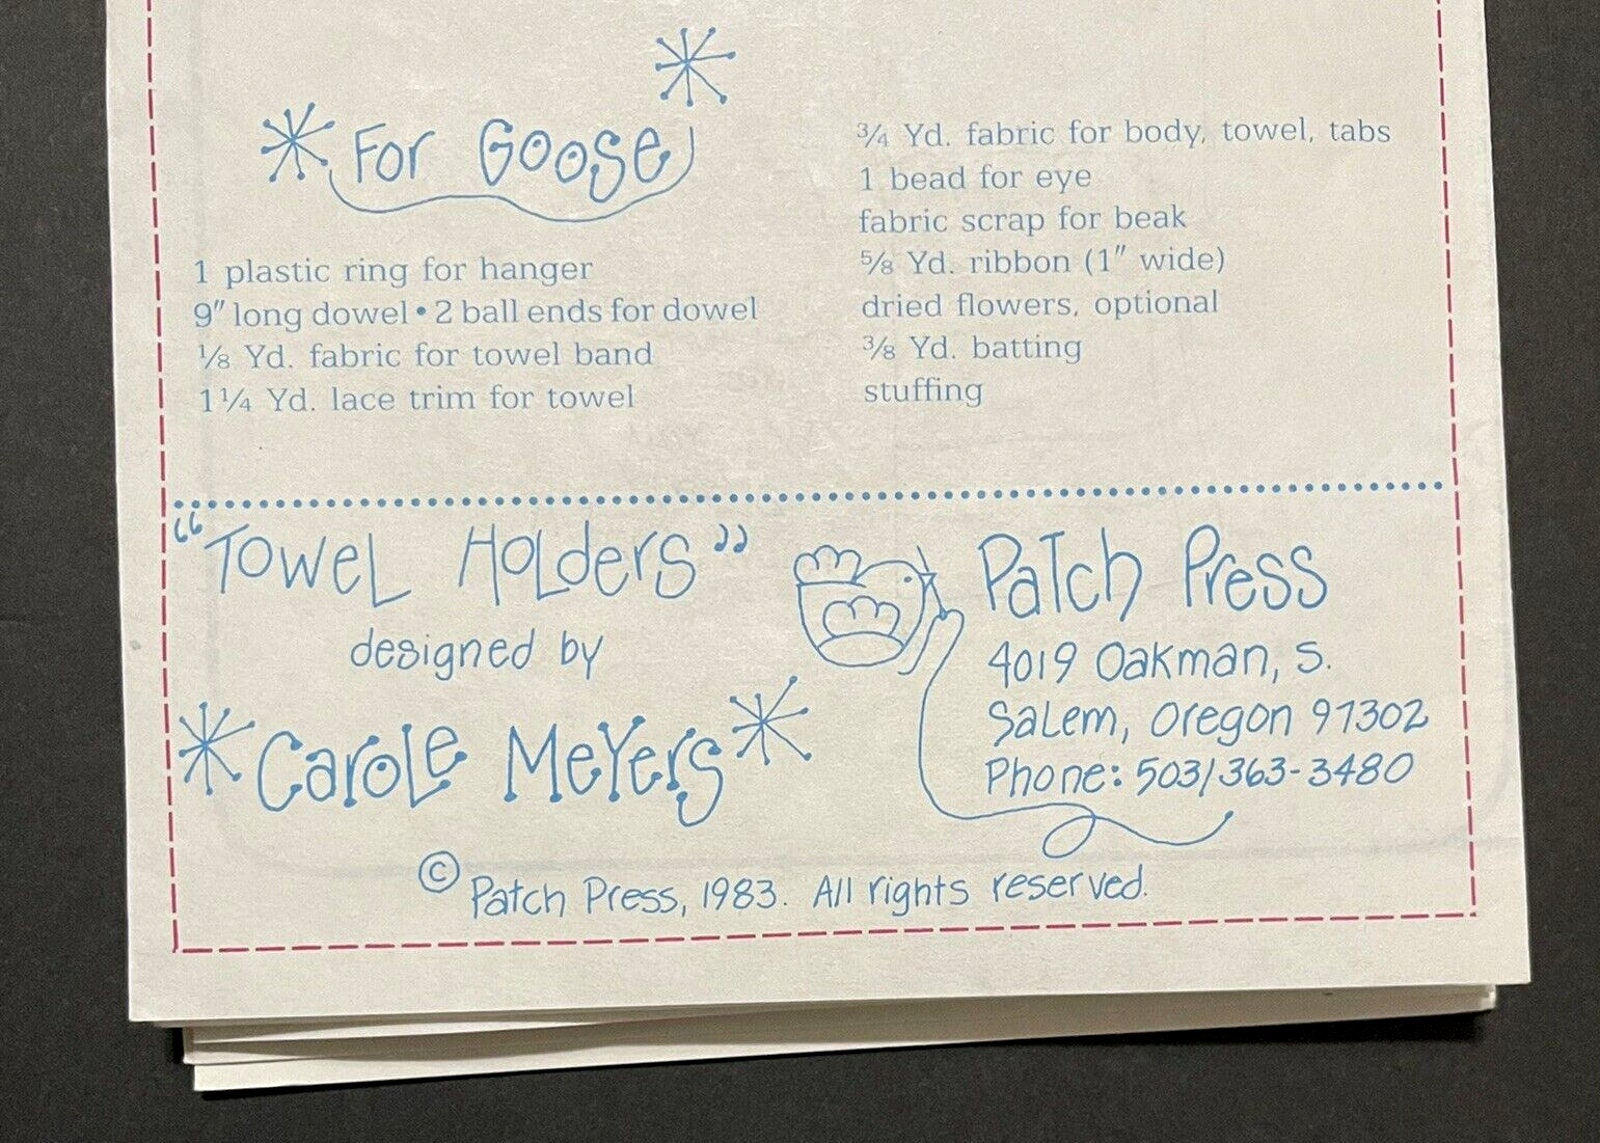 For Goose
1 plastic ring for hanger
9" long dowel • 2 ball ends for dowel
⅛ Yd. fabric for towel band
1¼ Yd. lace trim for towel
¾ Yd. fabric for body, towel, tabs
1 bead for eye
fabric scrap for beak
⅝ Yd. ribbon (1" wide)
dried flowers, optional
⅜ Yd. batting
stuffing
"Towel Holders"
designed by
Carole Meyers
Patch Press
4019 Oakman, S.
Salem, Oregon 97302
Phone: 503/363-3480
© Patch Press, 1983. All rights reserved.